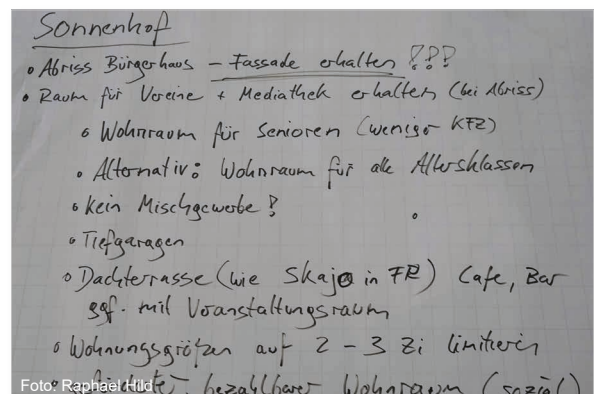 Sonnenhof
• Abriss Bürgerhaus – Fassade erhalten ???
• Raum für Vereine + Mediathek erhalten (bei Abriss)
• Wohnraum für Senioren (weniger KFZ)
• Alternativ: Wohnraum für alle Altersklassen
• Kein Mischgewerbe!
• Tiefgaragen
• Dachterrasse (wie Skajo in FR) Cafe, Bar
ggf. mit Veranstaltungsraum
• Wohnungsgrößen auf 2 – 3 Zi limitieren
bezahlbarer Wohnraum (sozial)
Foto: Raphael Hild